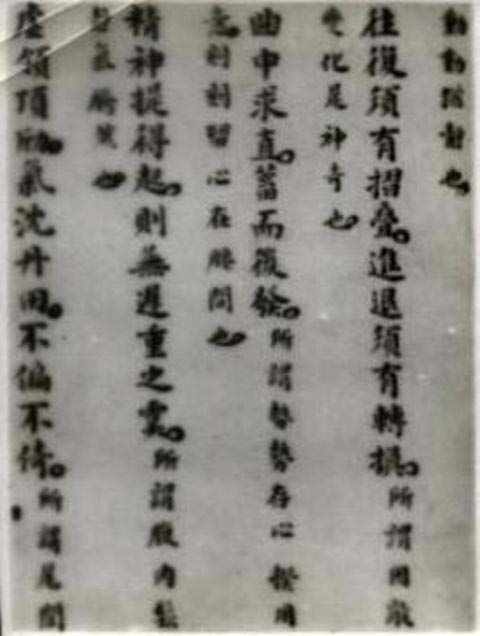 動動猶靜也。
往復須有摺疊。進退須有轉換。所謂因敵
變化是神奇也
曲中求直。蓄而後發。所謂勢勢存心揆用
意。刻刻留心在腰間也
精神提得起。則無遲重之虞。所謂腹內鬆
氣騰然也
虛領頂勁。氣沈丹田。不偏不倚。所謂尾閭